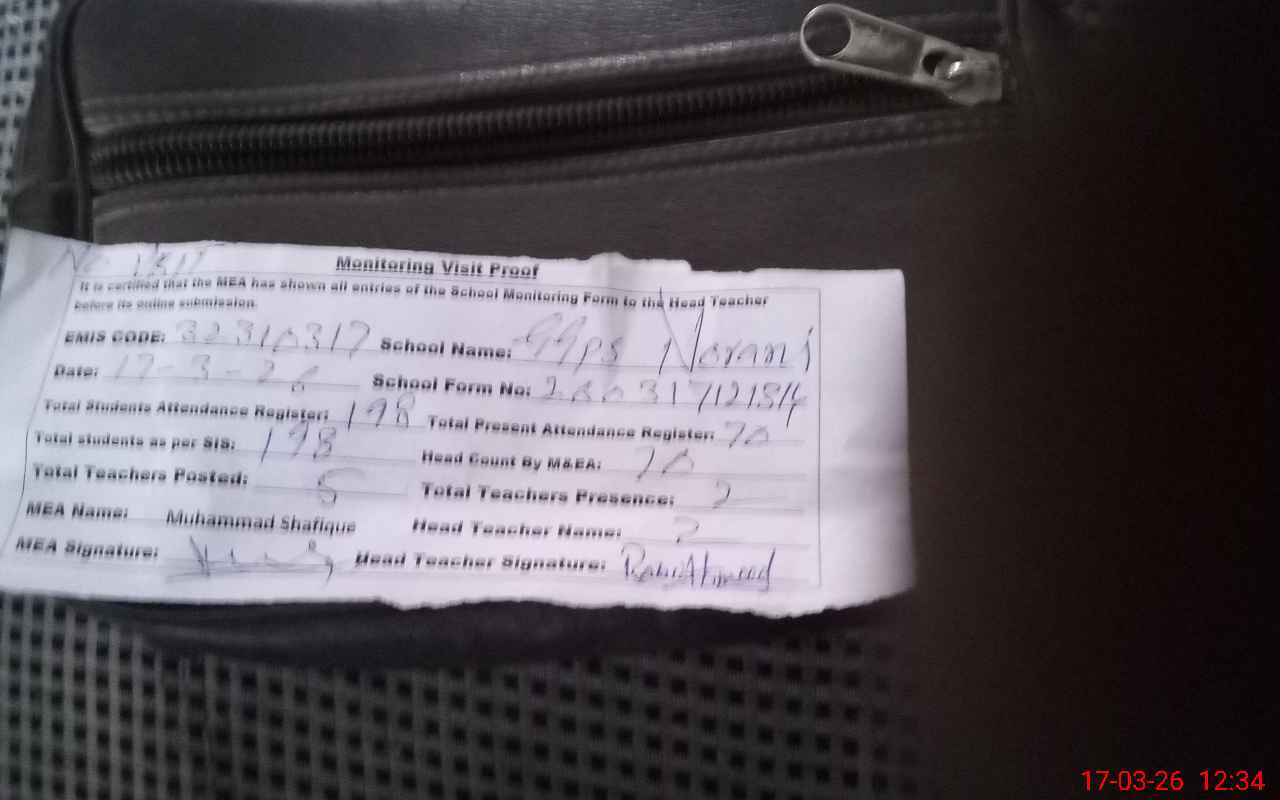 Monitoring Visit Proof
It is certified that the MEA has shown all entries of the School Monitoring Form to the Head Teacher
before its online submission.
EMIS CODE: 32310317 School Name: GGPS Norani
Date: 17-3-26 School Form No:
Total Students Attendance Register: 198 Total Present Attendance Register: 70
Total students as per SIS: 198 Head Count By M&EA: 70
Total Teachers Posted: 5 Total Teachers Presence: 2
MEA Name: Muhammad Shafique Head Teacher Name: 2
MEA Signature: Head Teacher Signature:
17-03-26 12:34